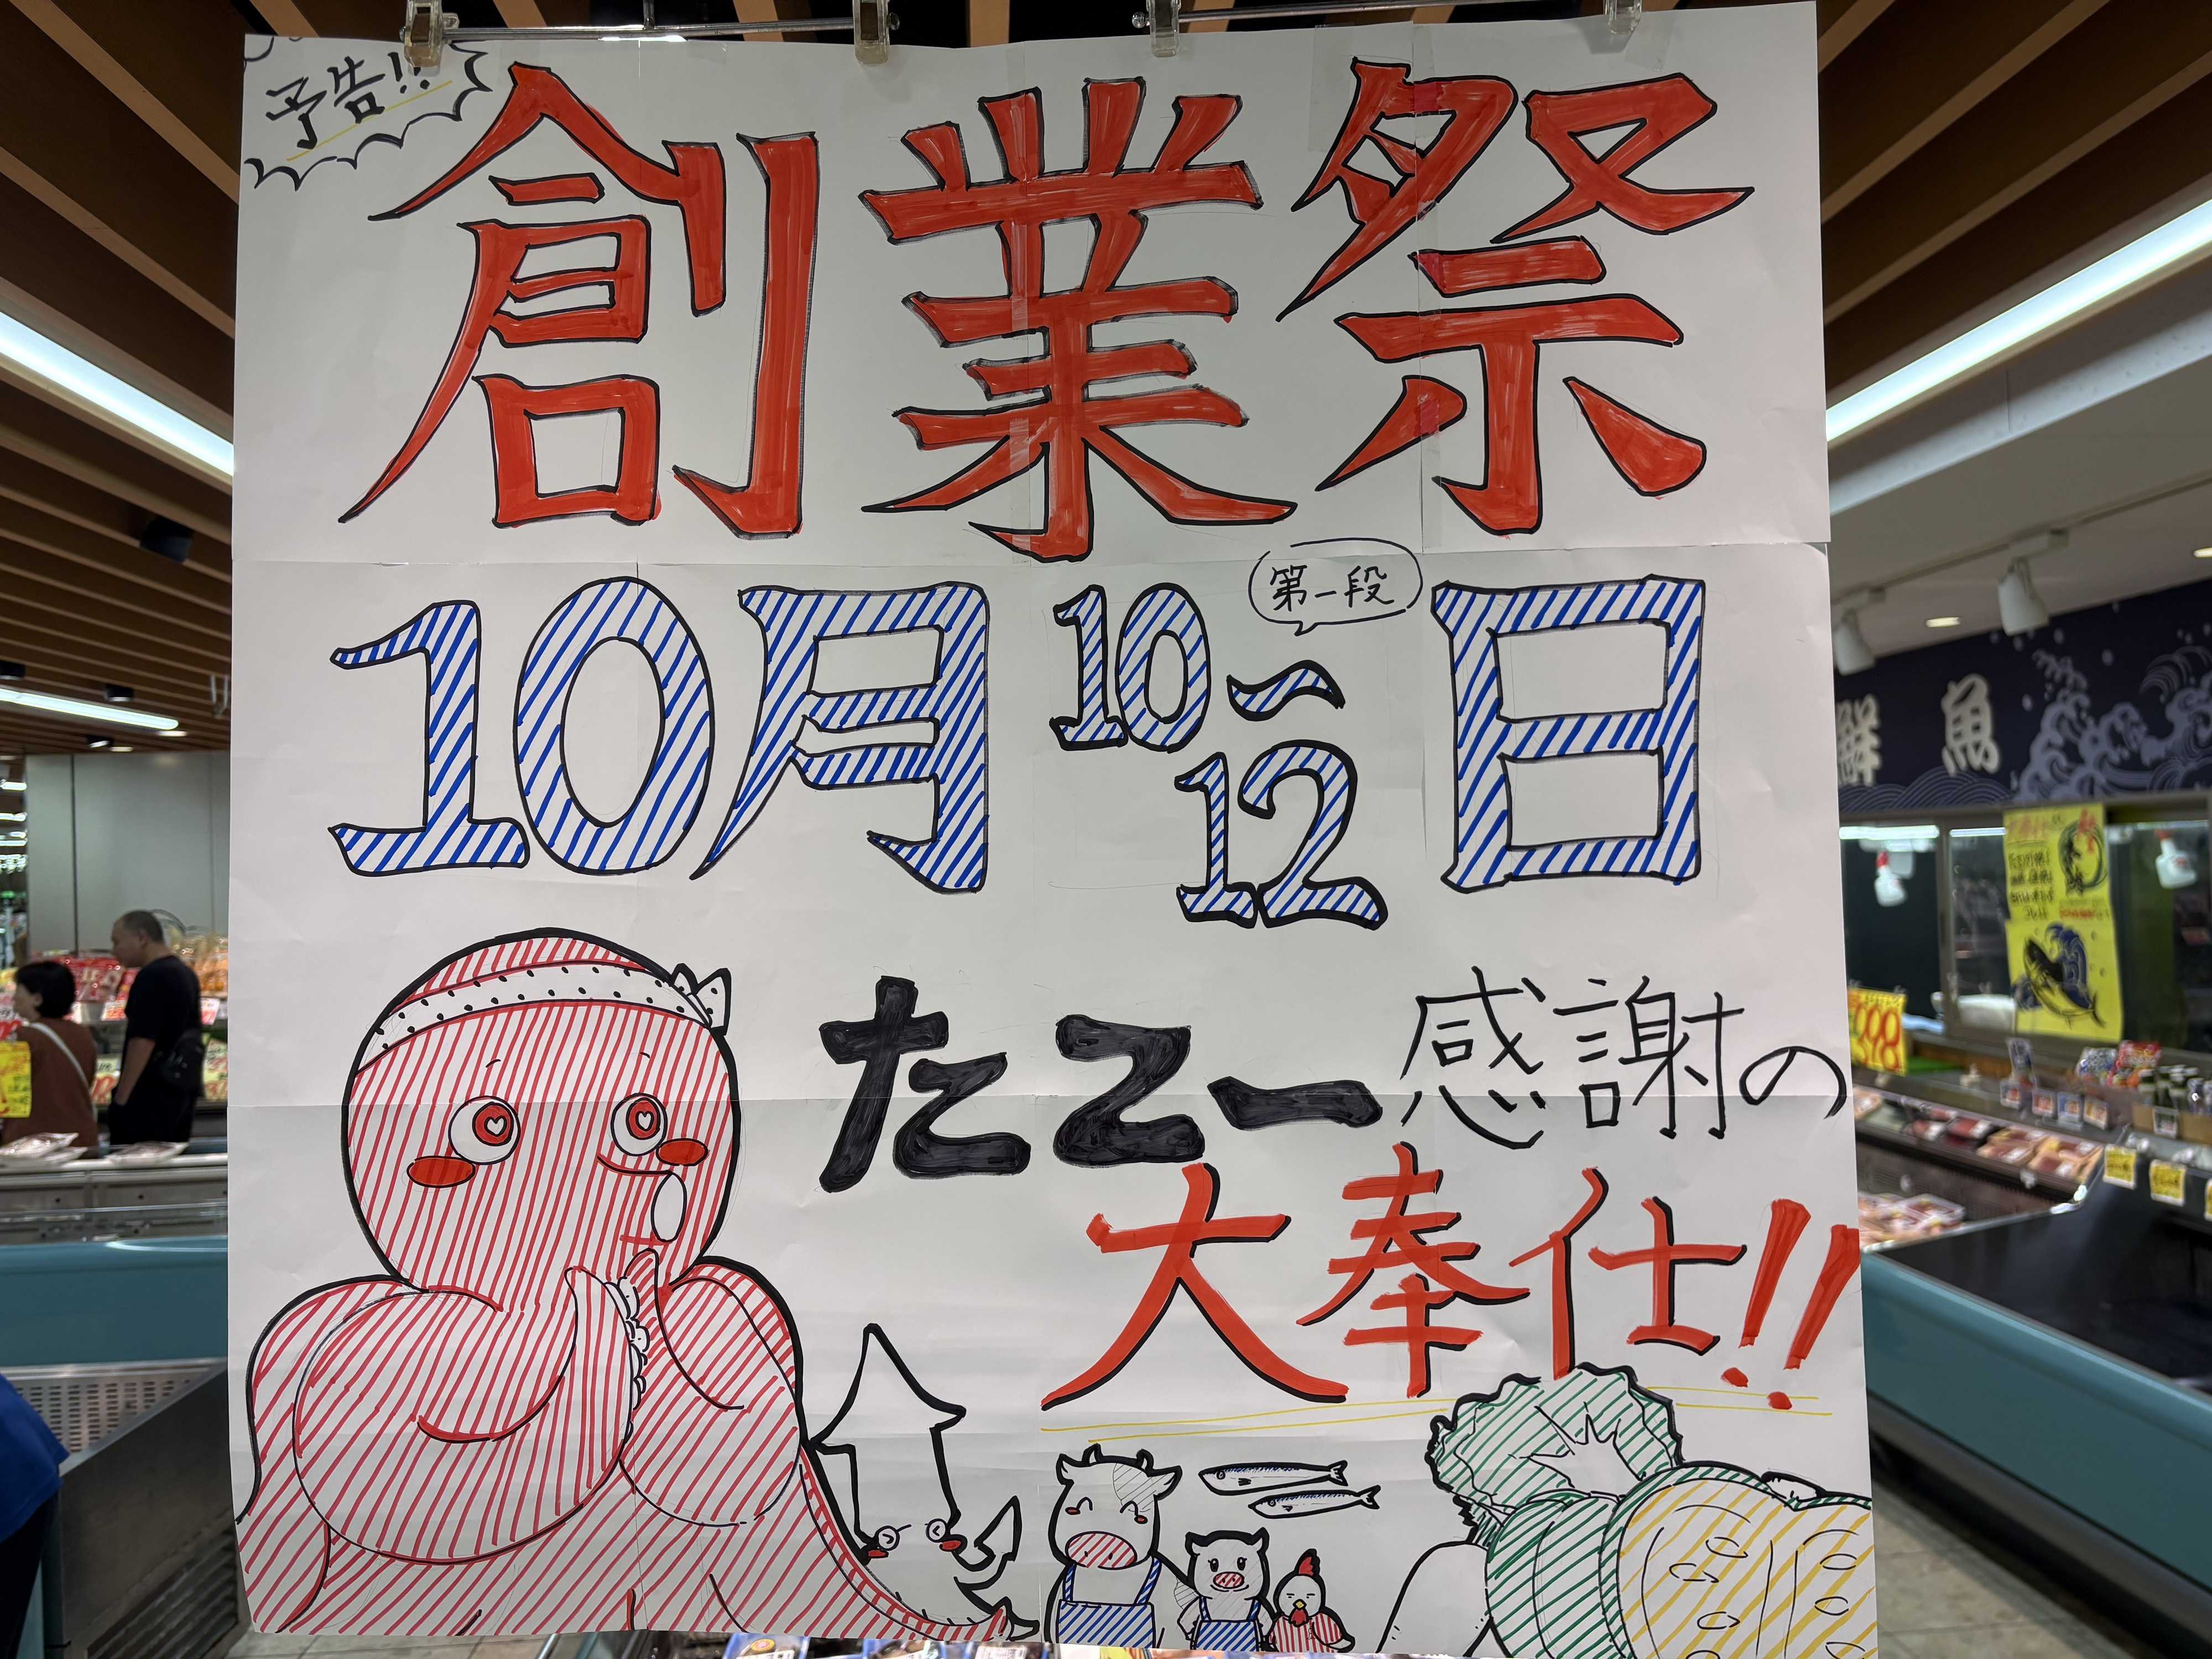 予告!!
創業祭
第一段
10月10〜12日
たこー感謝の
大奉仕!!
鮮魚